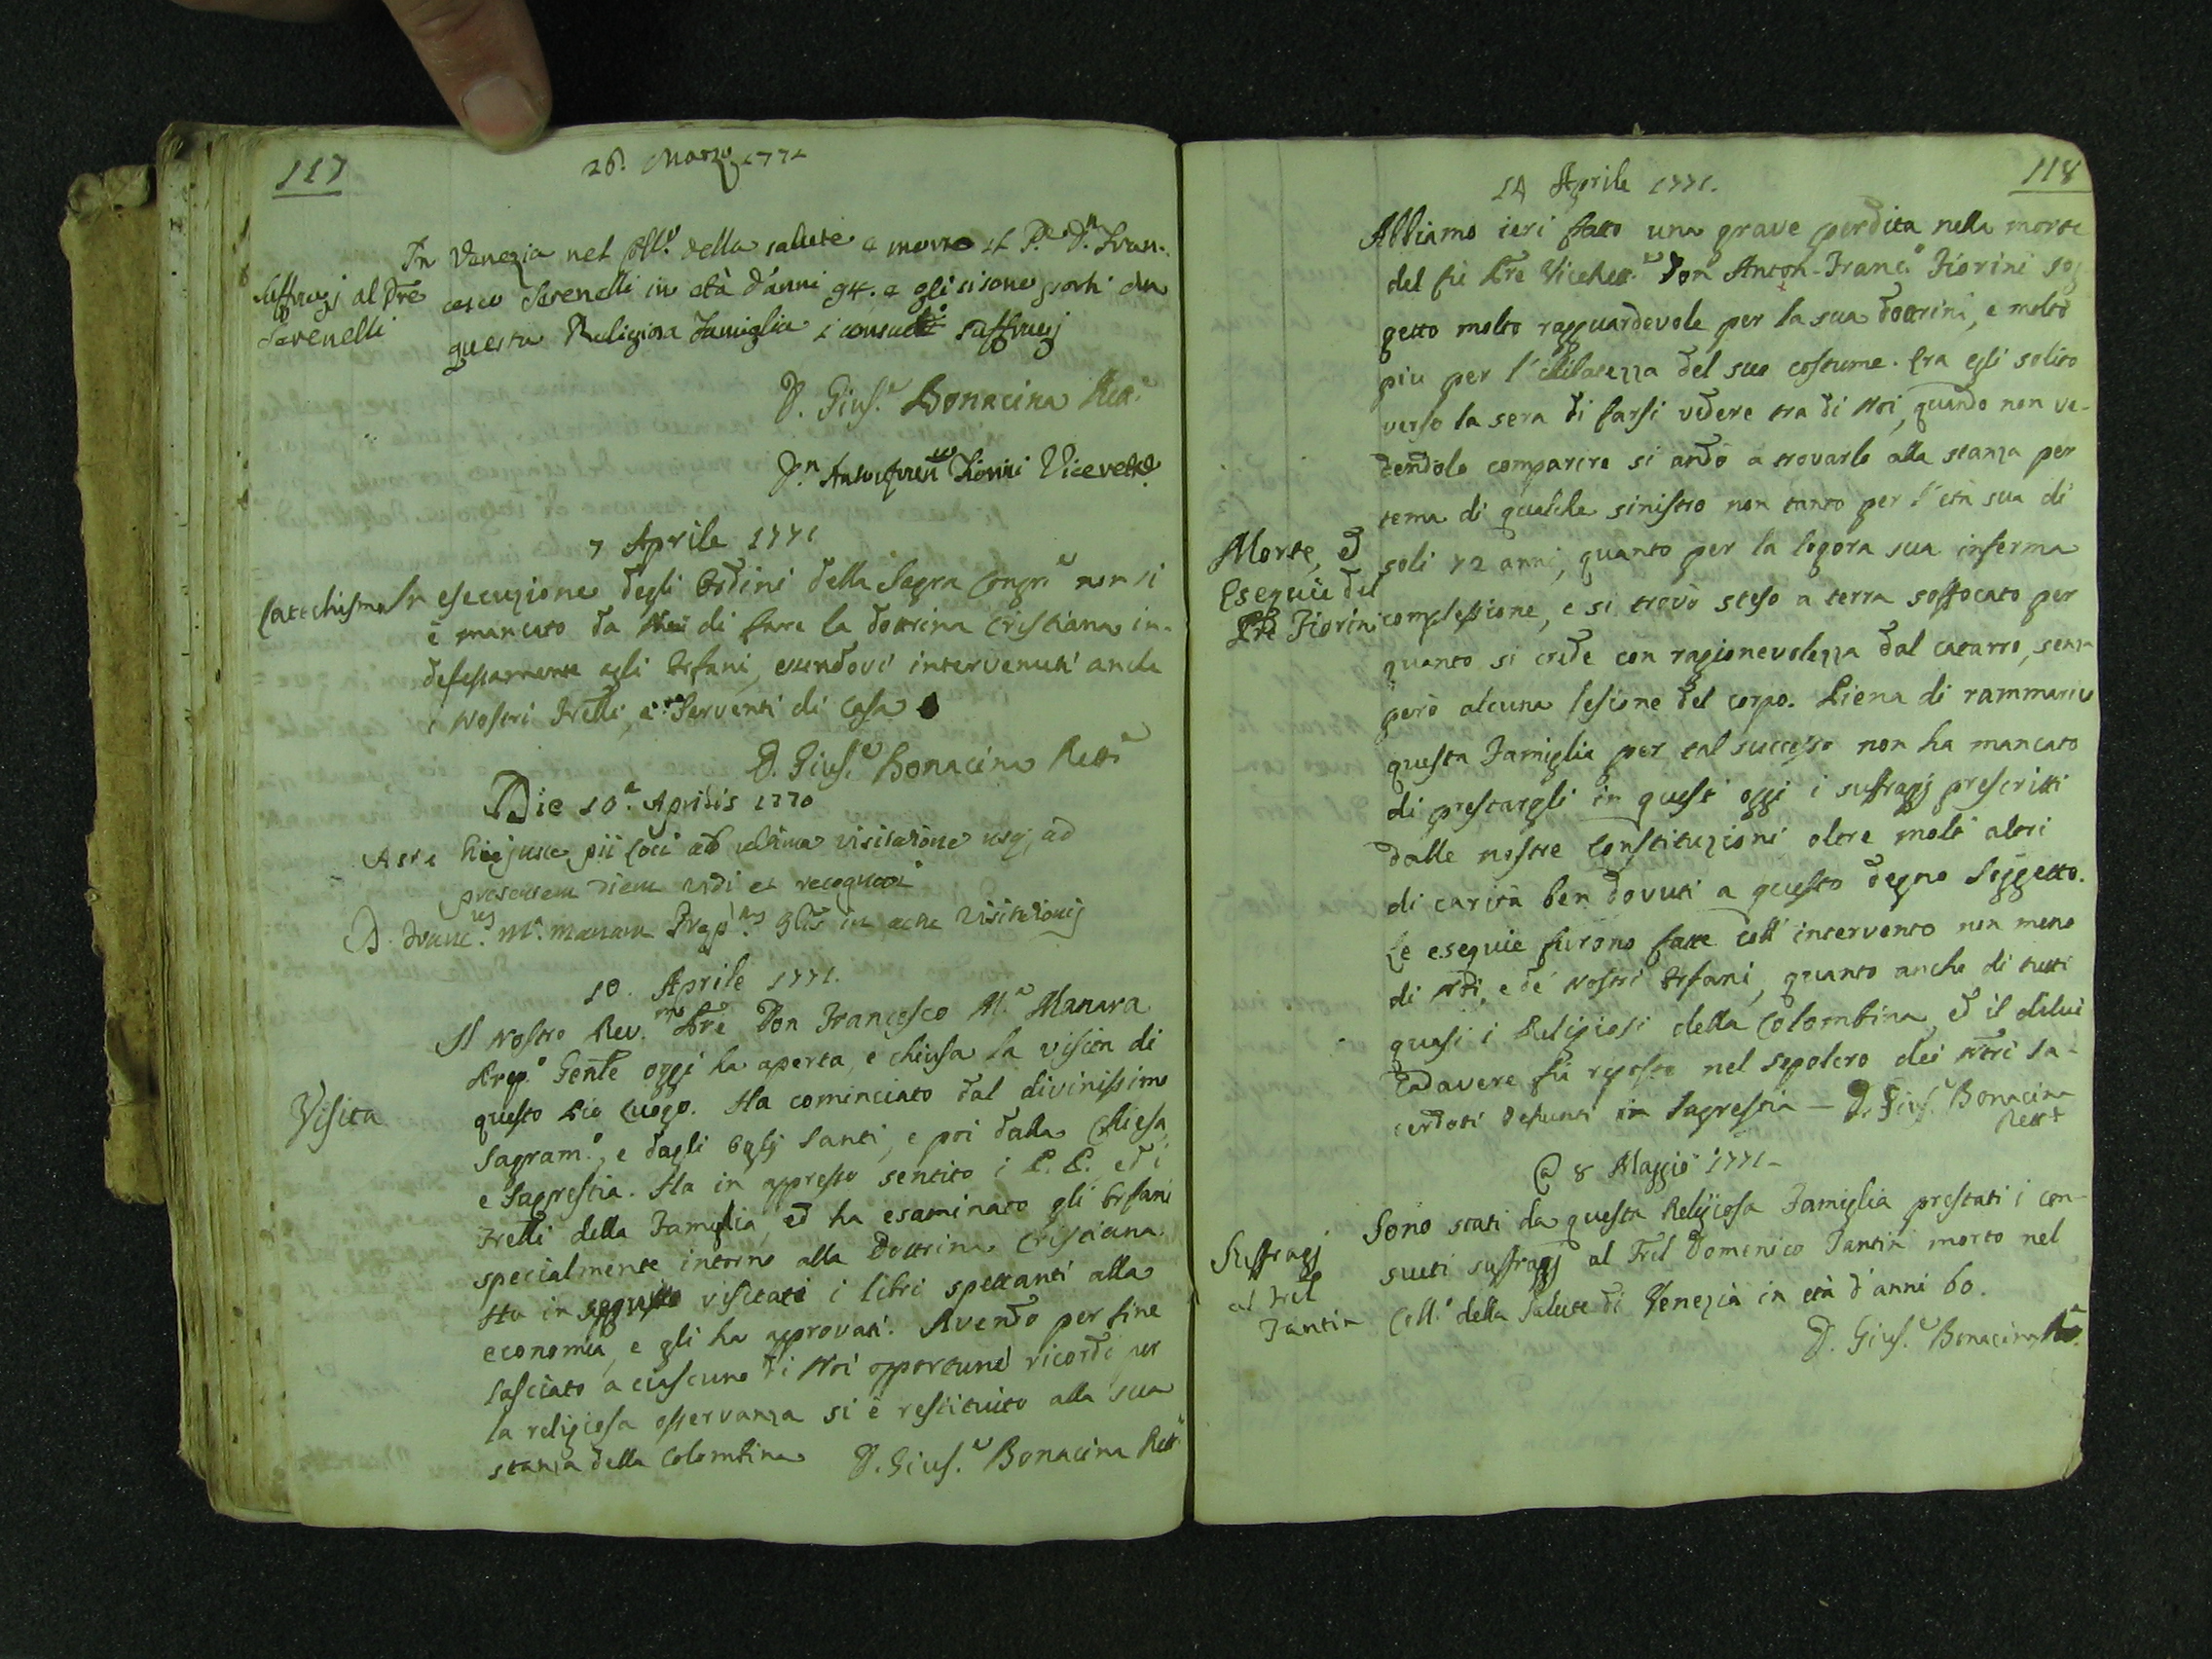 117
26. Marzo 1771
In Venezia nel Coll.o della salute è morto il P.e D.n Fran-
Suffragj al Pre
Savenelli
cesco Savenelli in età d'anni 94. e gli si sono prestati da
questa Religiosa Famiglia i consueti suffragj
D. Gius.e Bonacina Rett.e
D.n Antonfran.co Fiorini Vicerett.e
7 Aprile 1771
Catechismo
In esecuzione degli Ordini della Sagra Congr.e non si
è mancato da Noi di fare la dottrina Cristiana in-
defessamente agli Orfani, essendovi intervenuti anche
i Nostri Frelli, e Serventi di Casa
D. Gius.e Bonacina Rett.e
Die 10.a Aprilis 1770
Acta hujusce pii loci ab ultima visitatione usq; ad
presentem diem vidi et recognovi
D. Franc.us M.a Manara Prep.tus Glis in actu Visitationis
10. Aprile 1771.
Visita
Il Nostro Rev.mo Pre Don Francesco M.a Manara
Prep.o Genle oggi ha aperta, e chiusa la visita di
questo Pio Luogo. Ha cominciato dal divinissimo
Sagram.o, e dagli Oglj Santi, e poi dalla Chiesa,
e Sagrestia. Ha in appresso sentito i P. P. ed i
Frelli della Famiglia, ed ha esaminato gli Orfani
specialmente intorno alla Dottrina Cristiana.
Ha in seguito visitati i libri spettanti alla
economia, e gli ha approvati. Avendo per fine
lasciato a ciascuno di Noi opportuni ricordi per
la religiosa osservanza si è restituito alla sua
stanza della Colombina D. Gius.e Bonacina Rett.e
118
14 Aprile 1771.
Abbiamo ieri fatto una grave perdita nella morte
del fù Pre Vicerett.e Don Anton-Franc.o Fiorini sog
getto molto ragguardevole per la sua dottrina, e molto
più per l'illibatezza del suo costume. Era egli solito
verso la sera di farsi vedere tra di Noi, quando non ve-
dendolo comparire si andò a trovarlo alla stanza per
tema di qualche sinistro non tanto per l'età sua di
Morte, ed
Esequie del
Pre Fiorini
soli 72 anni, quanto per la logora sua inferma
complessione, e si trovò steso a terra soffocato per
quanto si crede con ragionevolezza dal catarro, senza
però alcuna lesione del corpo. Piena di rammarico
questa Famiglia per tal successo non ha mancato
di prestargli in quest' oggi i suffragj prescritti
dalle nostre Constituzioni oltre molti altri
di carità ben dovuti a questo degno Soggetto.
Le esequie furono fatte coll' intervento non meno
di Noi, e de' Nostri Orfani, quanto anche di tutti
quasi i Religiosi della Colombina, ed il di lui
Cadavere fù riposto nel sepolcro dei Ntri Sa-
cerdoti defunti in Sagrestia — D. Gius.e Bonacina
Rett.e
8 Maggio 1771
Suffragj
al Frel
Tantin
Sono stati da questa Religiosa Famiglia prestati i con-
sueti suffragj al Frel Domenico Tantin morto nel
Coll.o della Salute di Venezia in età d'anni 60.
D. Gius.e Bonacina Re.